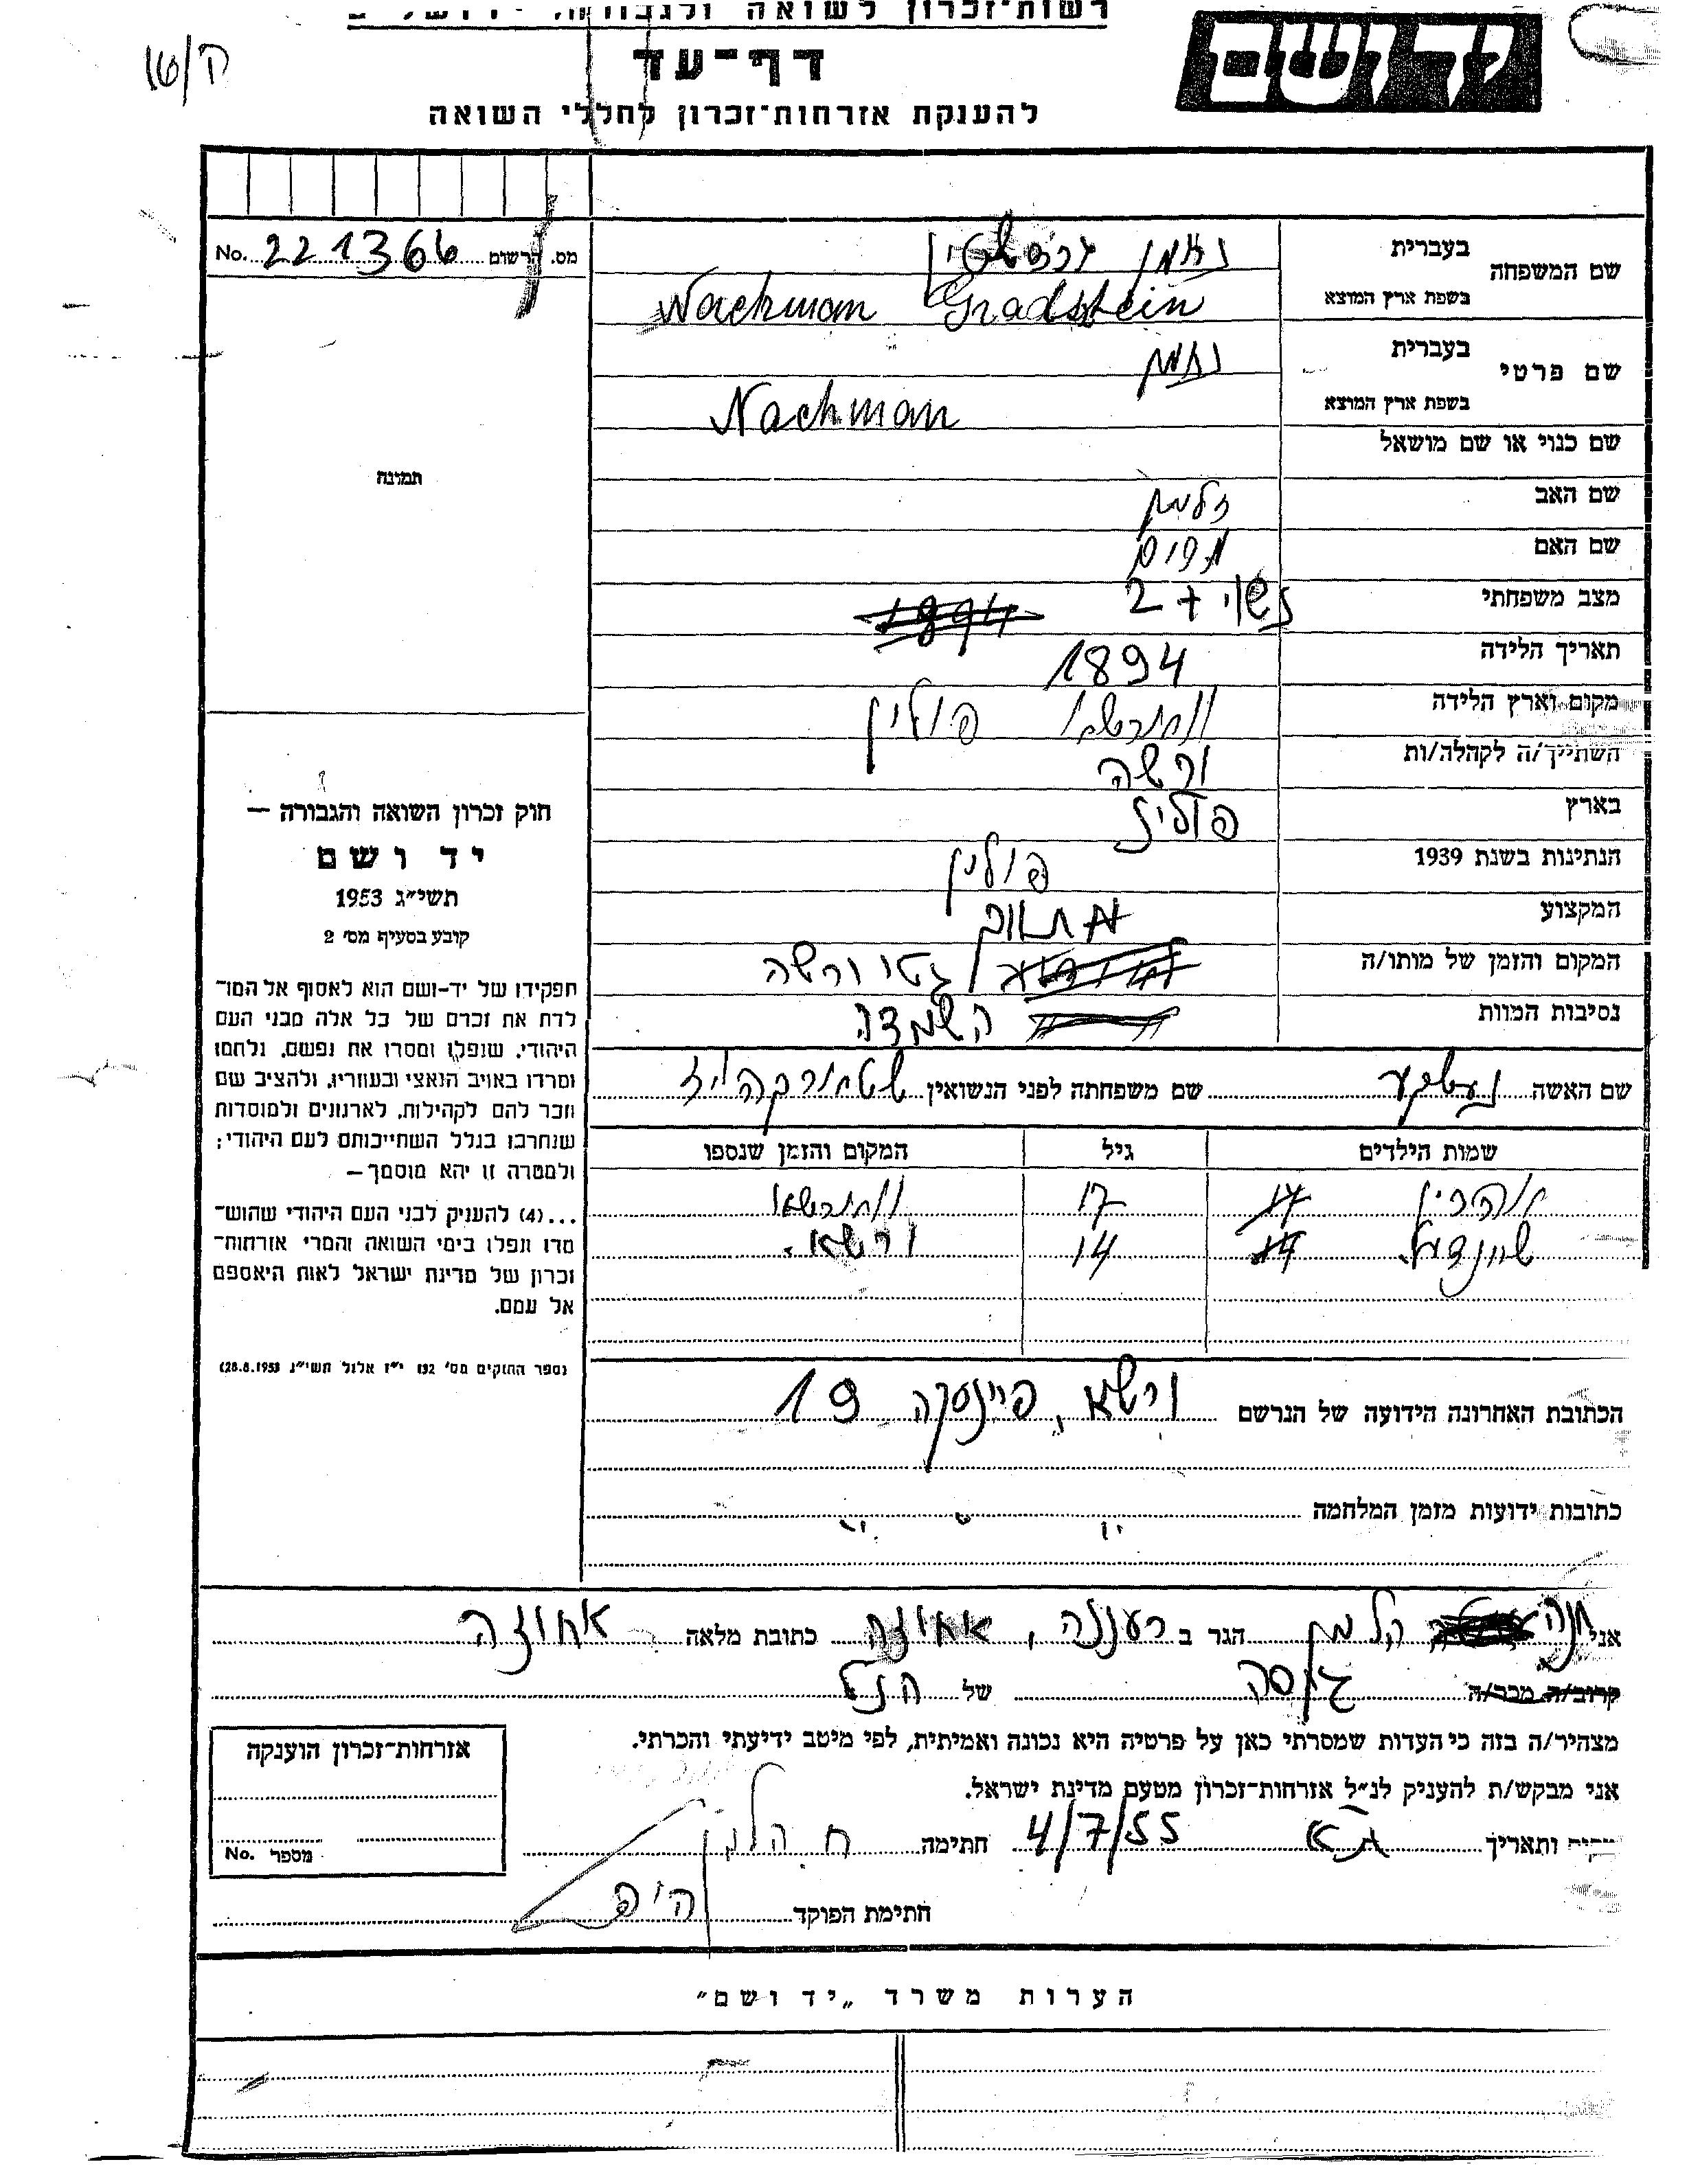 רשות־זכרון לשואה ולגבורה,
ידושם
דף־עד
להענקת אזרחות־זכרון לחללי השואה
מס. הרשום 221366 No.
שם המשפחה
בעברית
בשפת ארץ המוצא Nachman Gradstein
שם פרטי
בעברית נחמן
בשפת ארץ המוצא Nachman
שם כנוי או שם מושאל
שם האב זלמן
שם האם
מצב משפחתי נשוי + 2 1894
תאריך הלידה 1894
מקום וארץ הלידה פולין
השתייך/ה לקהלה/ות ורשה
בארץ פולין
הנתינות בשנת 1939 פולין
המקצוע
המקום והזמן של מותו/ה גטו ורשה
נסיבות המוות השמדה
שם האשה שם משפחתה לפני הנשואין
שמות הילדים גיל המקום והזמן שנספו
17 ווארשאו
14 14 ורשא.
הכתובת האחרונה הידועה של הנרשם ורשא, פיינסקה 19
כתובות ידועות מזמן המלחמה
אני חנה הלמן הגר ב רעננה, אחוזה כתובת מלאה אחוזה
קרוב/ה מכר/ה גיסה של הנ"ל
מצהיר/ה בזה כי העדות שמסרתי כאן על פרטיה היא נכונה ואמיתית, לפי מיטב ידיעתי והכרתי.
אני מבקש/ת להעניק לנ"ל אזרחות־זכרון מטעם מדינת ישראל.
ותאריך ת"א 4/7/55 חתימה ח הלמן
חתימת הפוקד
תמונה
חוק זכרון השואה והגבורה —
יד ושם
תשי"ג 1953
קובע בסעיף מס' 2
תפקידו של יד-ושם הוא לאסוף אל המו־
לדת את זכרם של כל אלה מבני העם
היהודי, שנפלו ומסרו את נפשם, נלחמו
ומרדו באויב הנאצי ובעוזריו, ולהציב שם
וזכר להם לקהילות, לארגונים ולמוסדות
שנחרבו בגלל השתייכותם לעם היהודי;
ולמטרה זו יהא מוסמך—
...(4) להעניק לבני העם היהודי שהוש־
מדו ונפלו בימי השואה והמרי אזרחות־
זכרון של מדינת ישראל לאות היאספם
אל עמם.
(ספר החוקים מס' 132 י"ז אלול תשי"ג 28.8.1953)
אזרחות־זכרון הוענקה
מספר No.
הערות משרד „יד ושם"